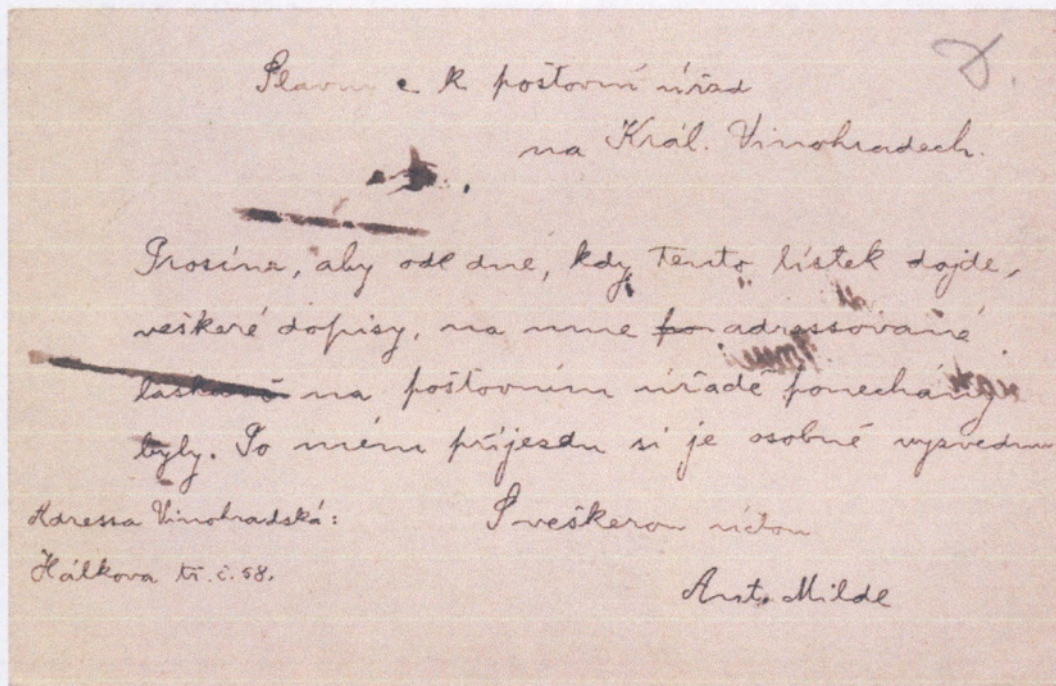 Slavný c k poštovní úřad
na Král. Vinohradech.
Prosím, aby ode dne, kdy tento lístek dojde,
veškeré dopisy, na mne po adressované
laskavě na poštovním úřadě ponechány
byly. Po mém příjezdu si je osobně vyzvednu
Adressa Vinohradská:
S veškerou úctou
Hálkova tř. č. 58.
Ant. Milde